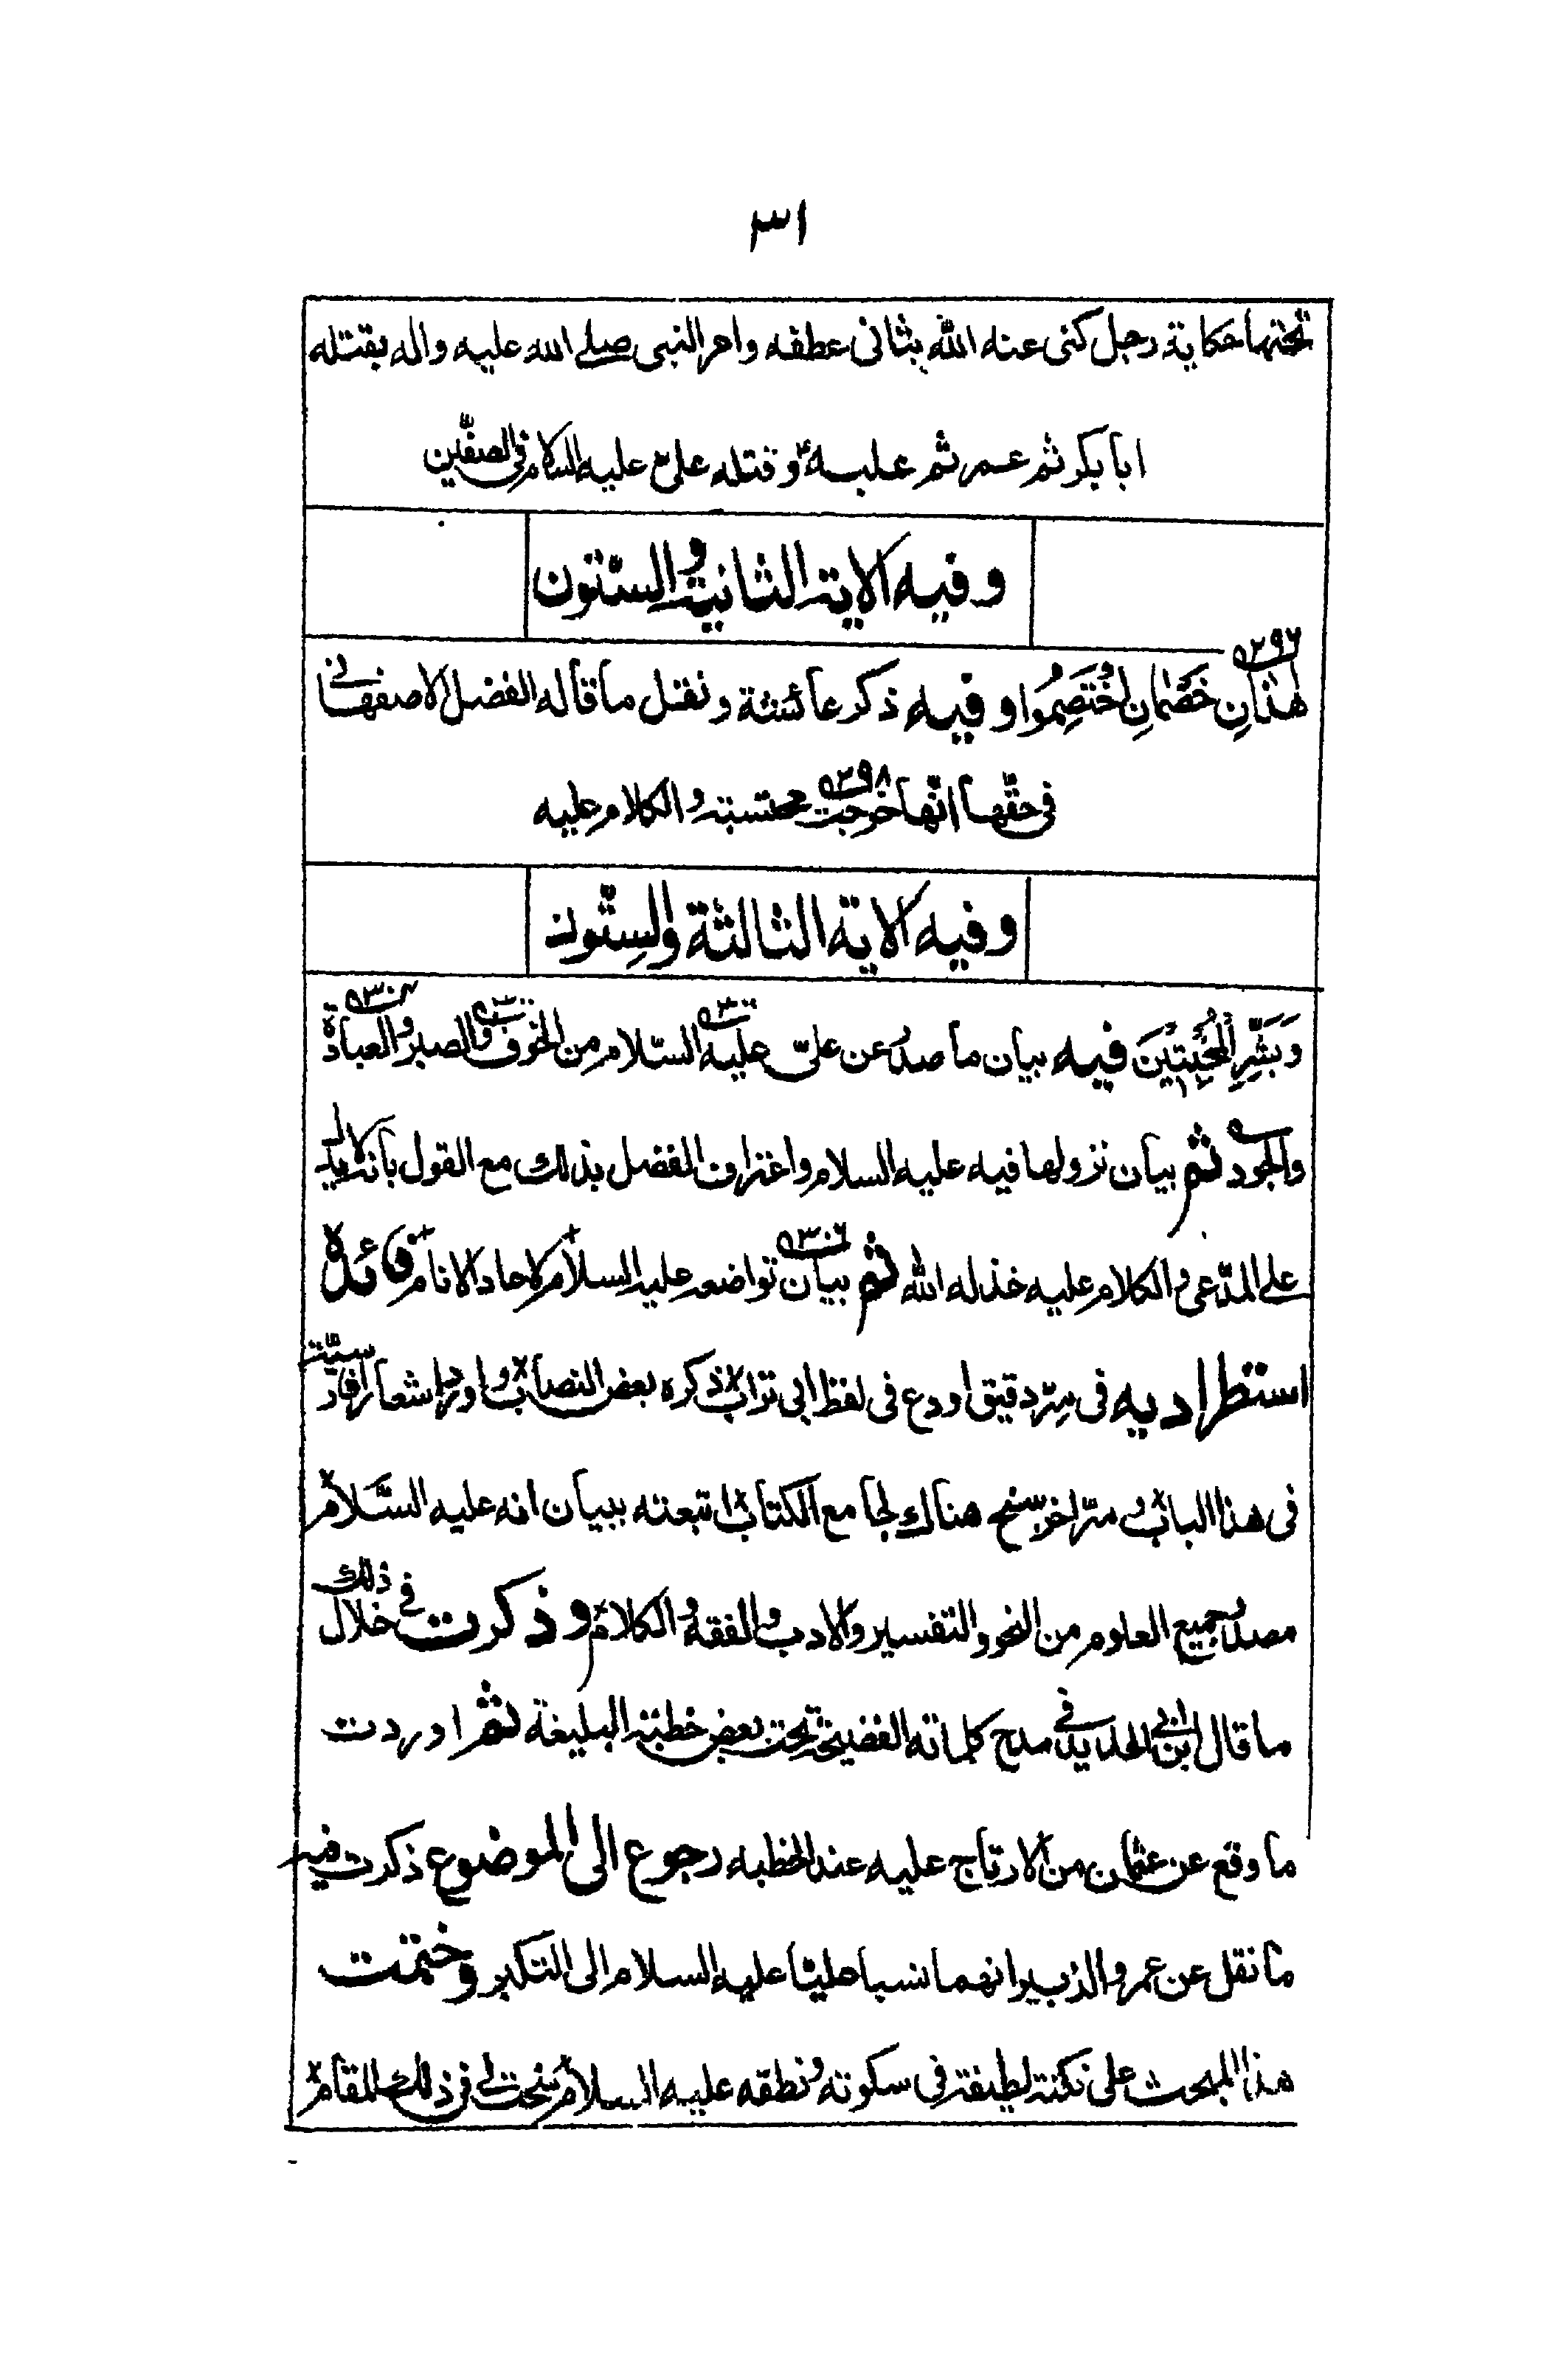 ٣١
تحتها حكاية رجل كنى عنه الله بثانى عطفه وامر النبى صلى الله عليه واله بقتله
ابا بكر ثم عمر ثم عليه وقتله على ع عليه السلام فى الصفين
وفيه الاية الثانية والستون
٢٩٦
هٰذانِ خَصْمانِ اخْتَصِمُوا وفيه ذكر عائشة ونقل ما قاله الفضل الاصفهانى
٢٩٨
فى حقها انّها خرجت محتسبة والكلام عليه
وفيه الاية الثالثة والستون
٣٠٠
وَبَشِّرِ الْمُخْبِتِينَ فيه بيان ما صدر عن علىّ عليه السّلام من الخوف والصبر والعبادة
والجود ثم بيان نزولها فيه عليه السلام واعتراف الفضل بذلك مع القول بانه لا يدل
٣٠٦
على المدّعى والكلام عليه خذله الله ثم بيان تواضعه عليه السلام لاحاد الانام فائدة
استطراديه فى سرّ دقيق اودع فى لفظ ابى تراب ذكره بعض النصاب واورد اشعار فارسيّة
فى هذا الباب وسرّ اخر سنح هناك لجامع الكتاب اتبعته ببيان انه عليه السّلام
مصدر جميع العلوم من النحو والتفسير والادب والفقه والكلام وذكرت فى خلال ذلك
ما قال ابن ابى الحديد فى مدح كلماته الفضيحة تحت بعض خطبته البليغة ثم اوردت
ما وقع عن عثمان من الارتاج عليه عند الخطبه رجوع الى الموضوع ذكرت فيه
ما نقل عن عمر والزبير انهما نسبا عليّا عليه السلام الى التكبر وختمت
هذا المبحث على نكتة لطيفة فى سكوته ونطقه عليه السلام سنحت لى فى ذلك المقام